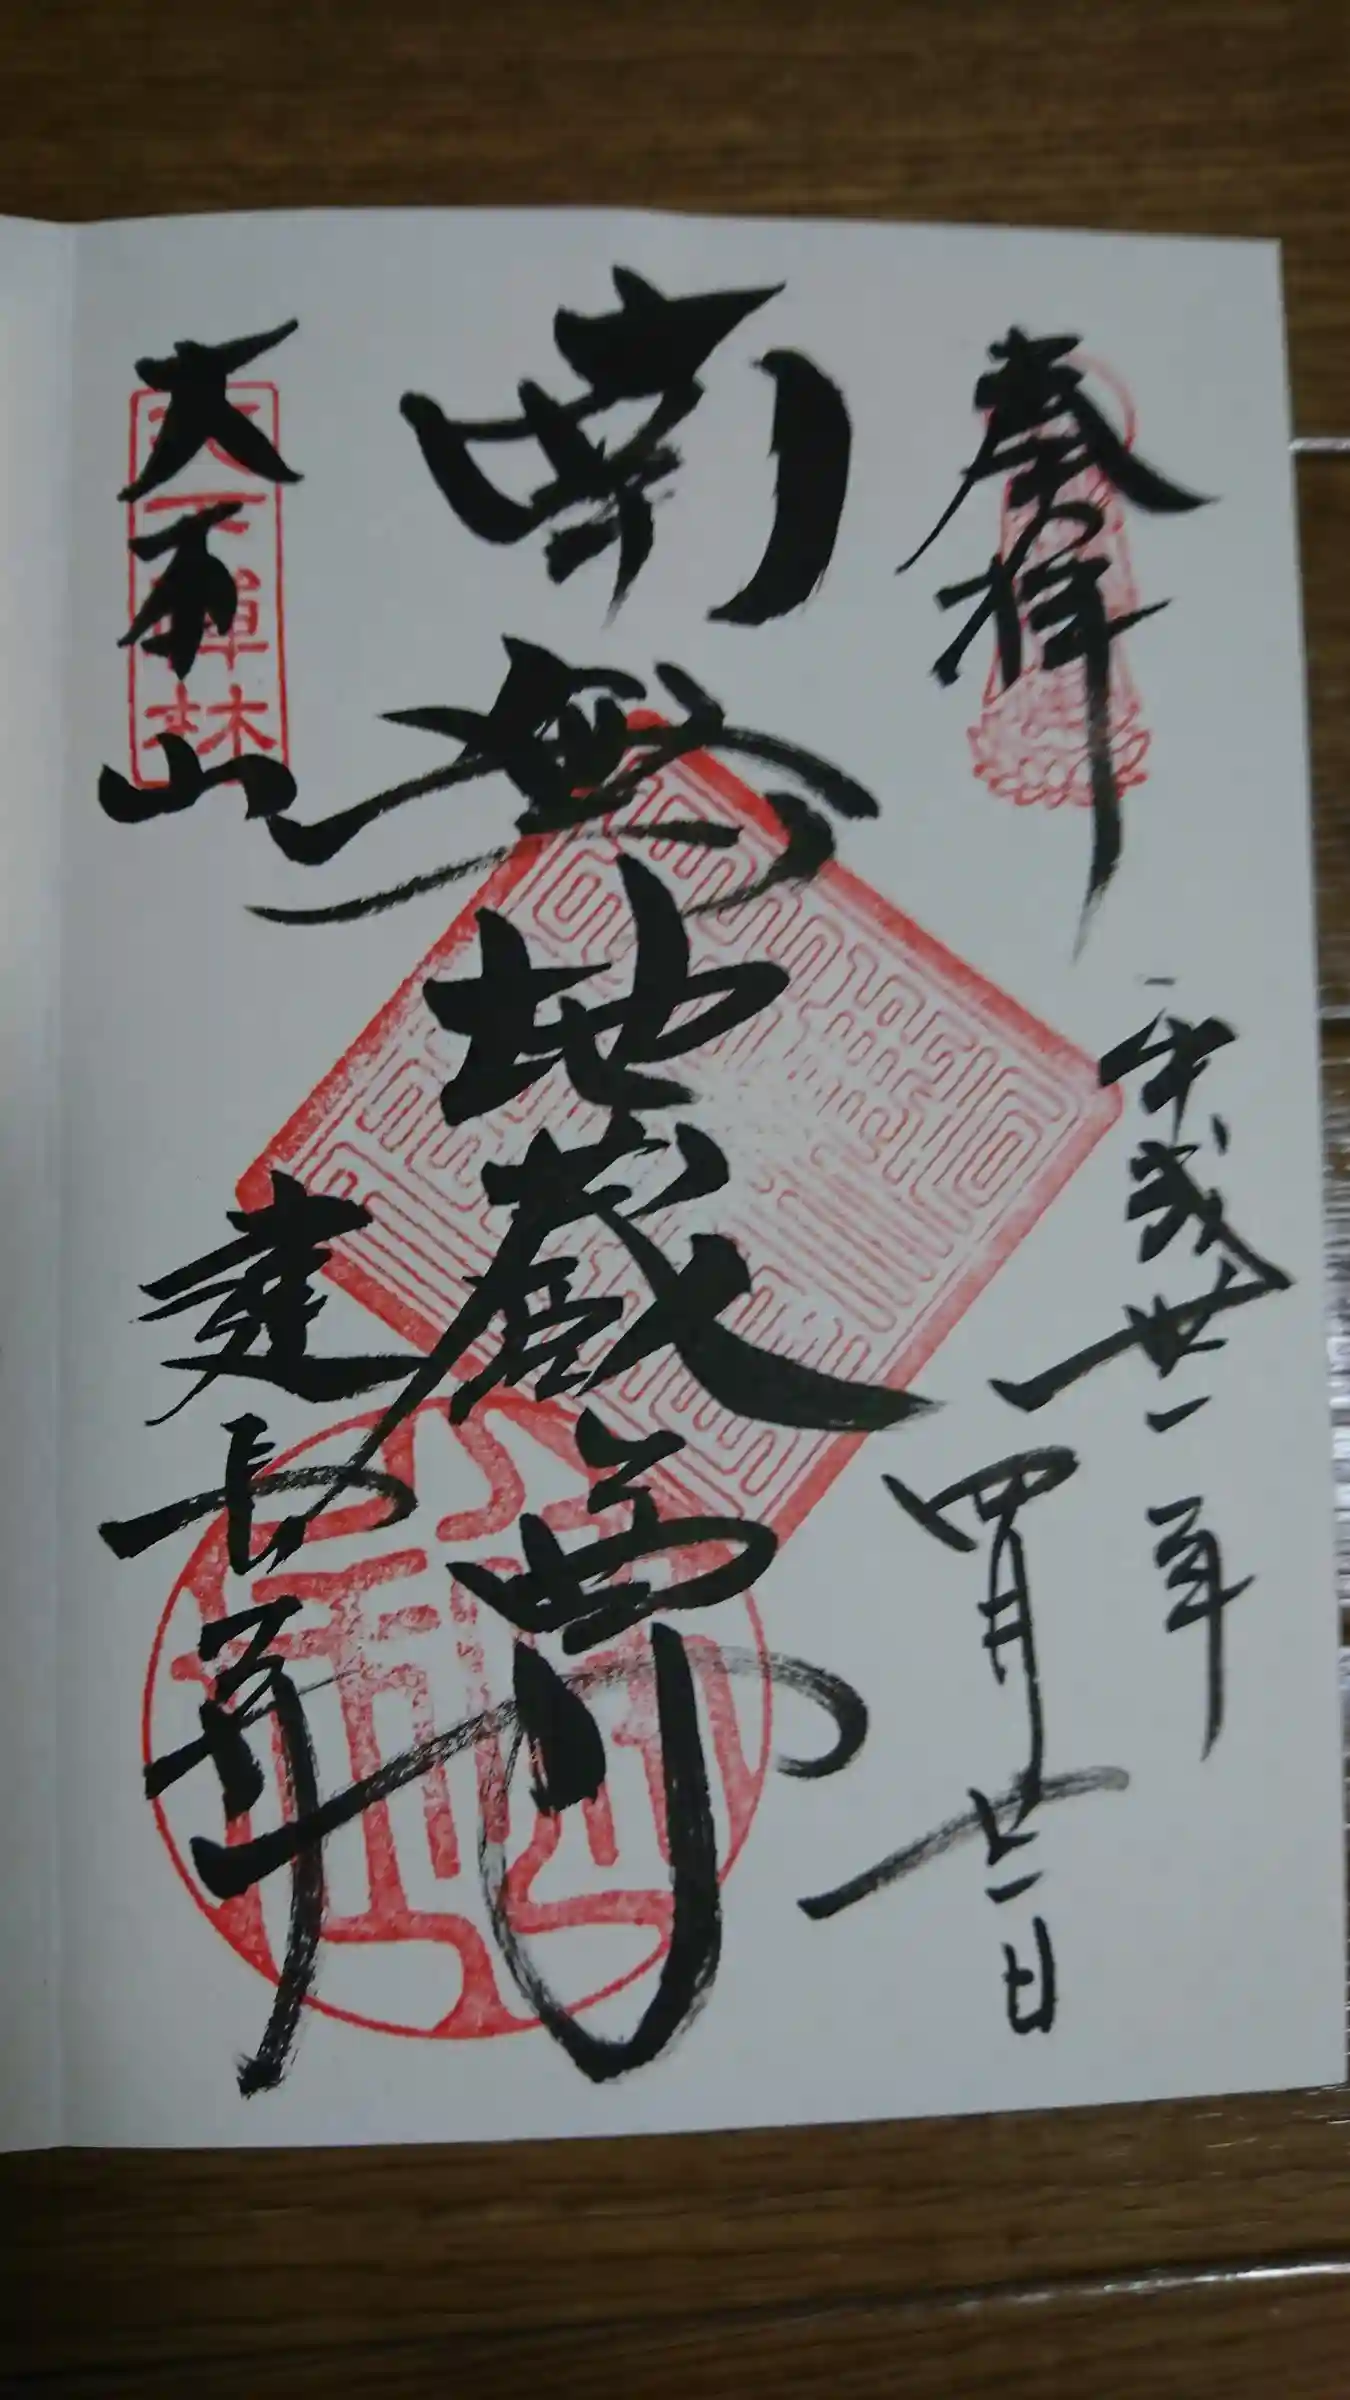 奉拝
平成卅一年
四月廿一日
南無地蔵尊
大本山
建長寺
天下禅林